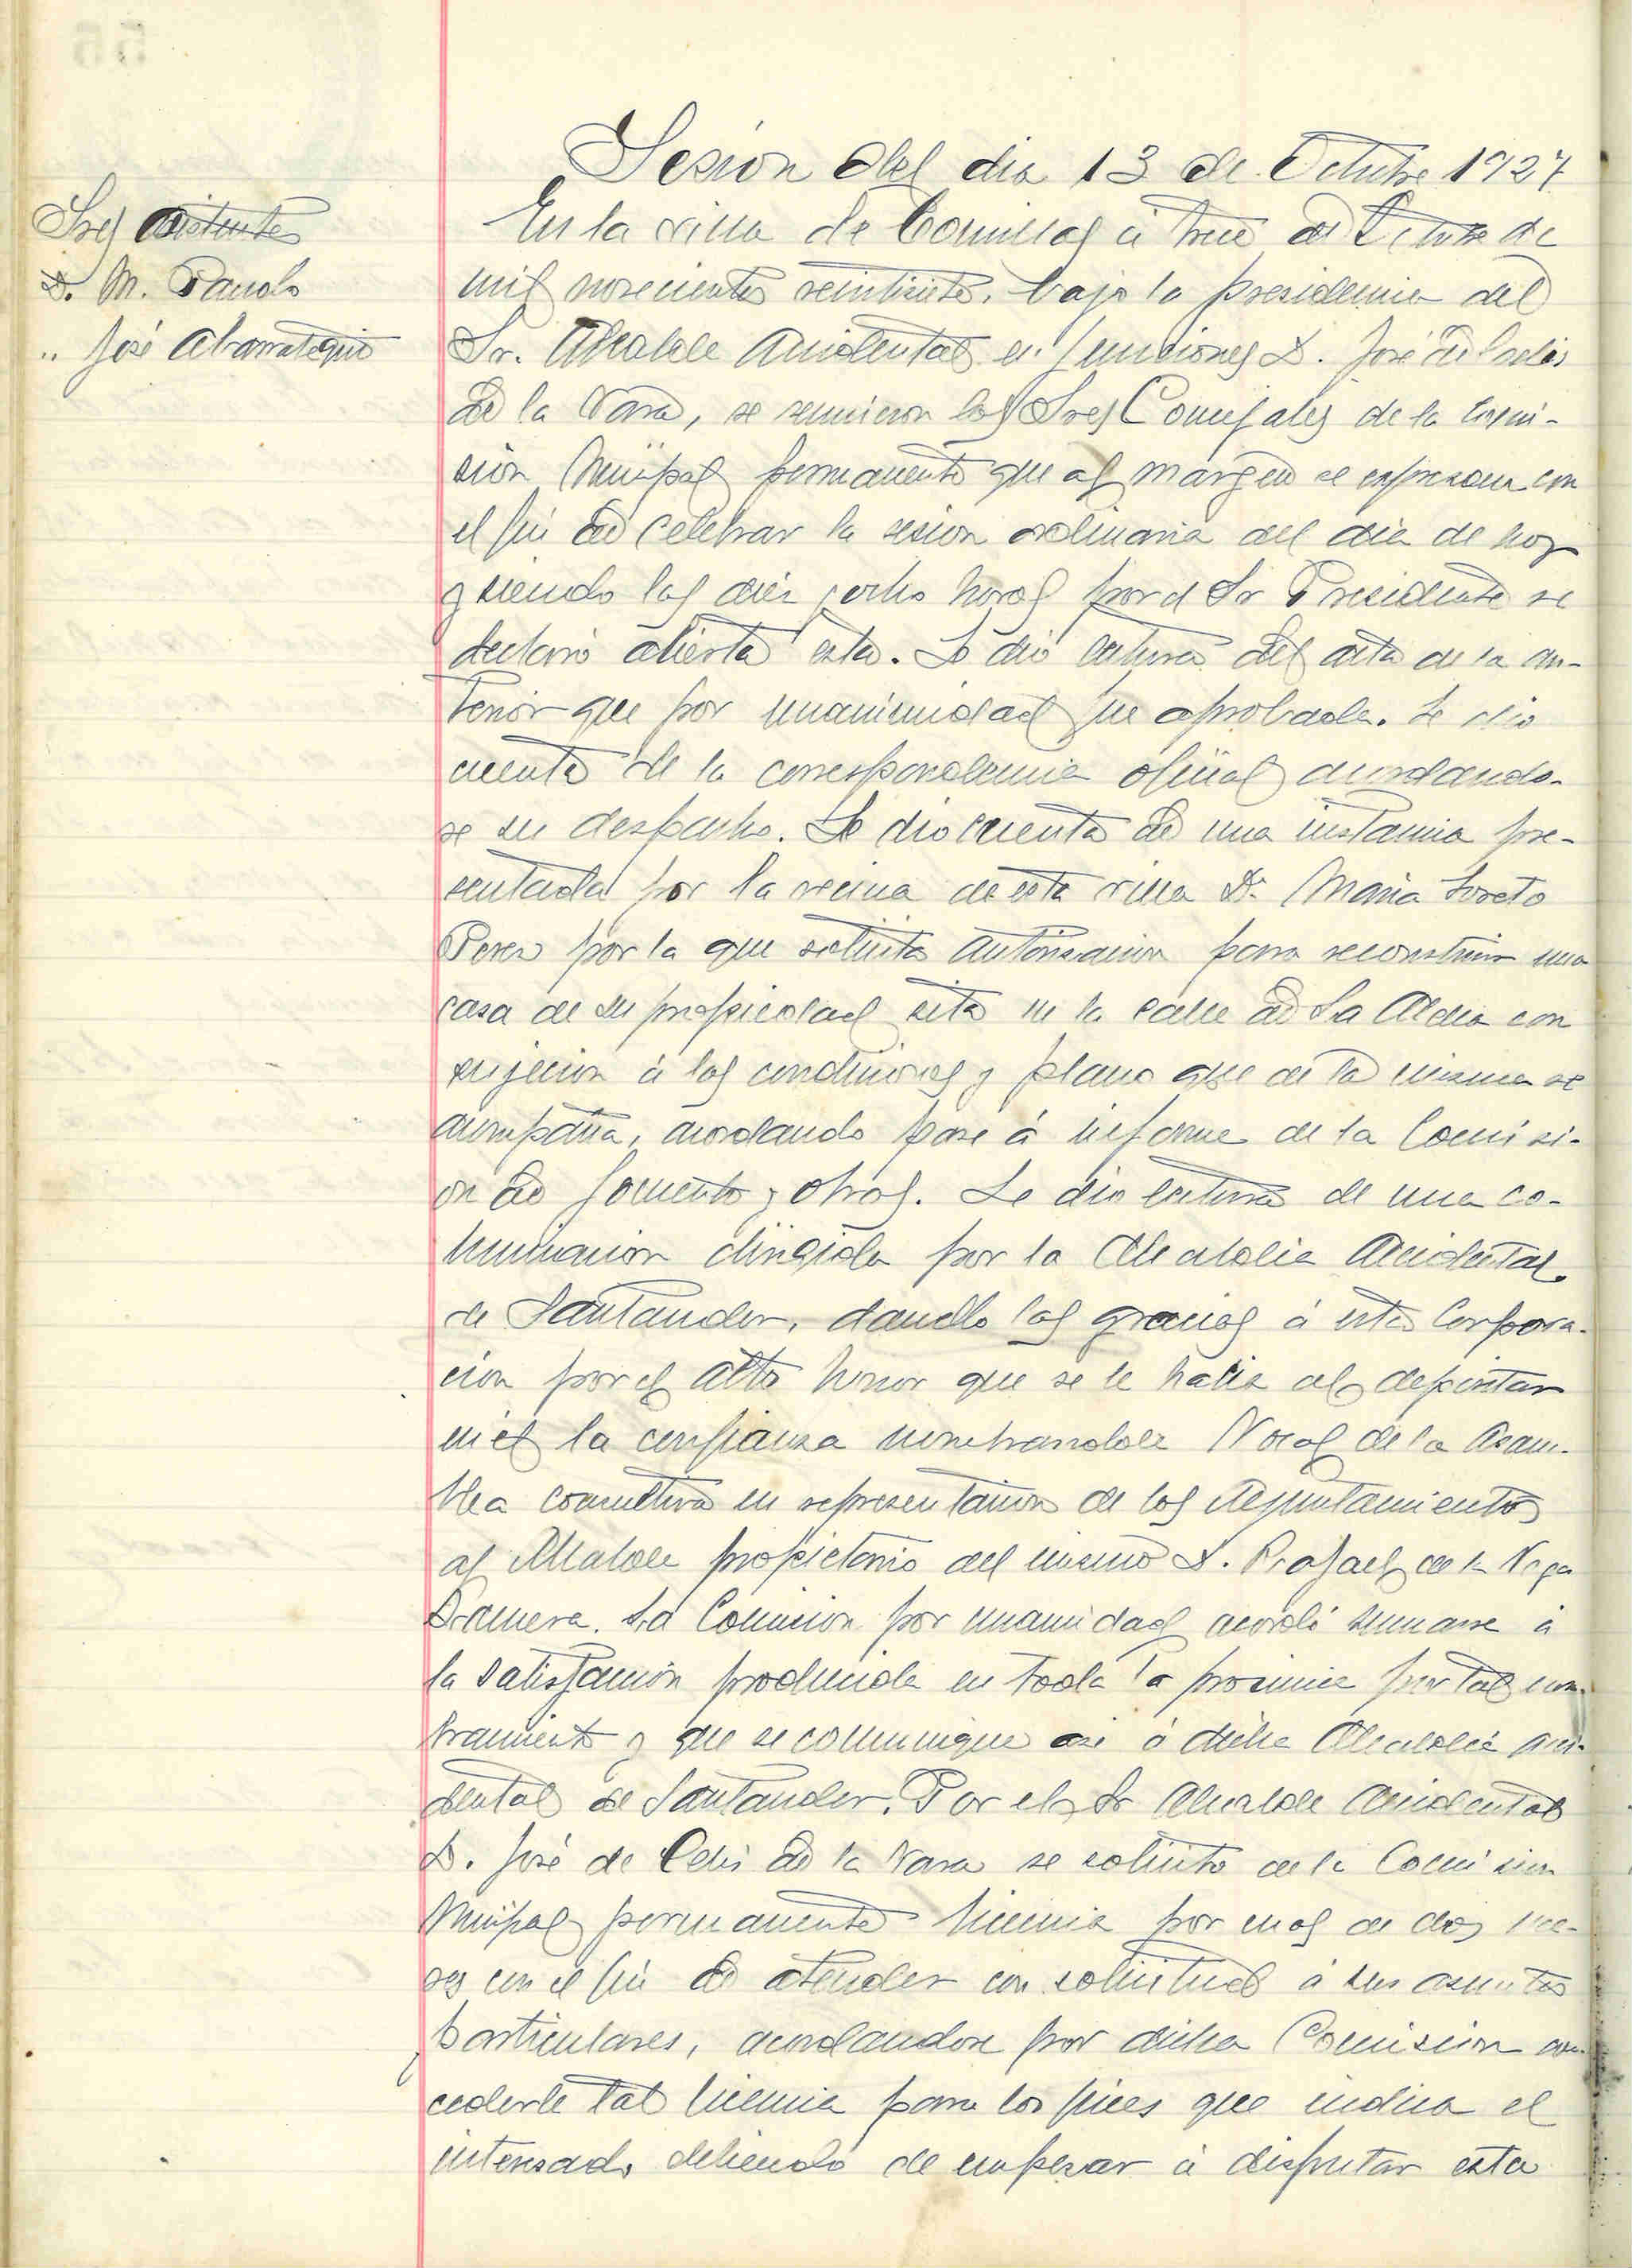 Sesion del dia 13 de Octubre 1927
Sres asistentes
D. M.
" José Abarrategui
En la villa de Comillas á trece de Octubre de
mil novecientos veintisiete, bajo la presidencia del
Sr. Alcalde Accidental en funciones D. José de Celis
de la Vara, se reunieron los Sres Concejales de la Comi-
sión Munipal permanente que al margen se expresan con
el fin de celebrar la sesion ordinaria del dia de hoy
y siendo las diez y ocho horas por el Sr Presidente se
declaró abierta esta. Se dió lectura del acta de la an-
terior que por unanimidad fue aprobada. Se dio
cuenta de la correspondencia oficial acordando-
se su despacho. Se dio cuenta de una instancia pre-
sentada por la vecina de esta villa Dª Maria Loreto
Perez por la que solicita autorizacion para reconstruir una
casa de su propiedad sita en la calle de La Aldea con
sujecion á las condiciones y plano que de la misma se
acompaña, acordando pase á informe de la Comisi-
on de fomento y obras. Se dio lectura de una co-
municacion dirigida por la Alcaldia Accidental
de Santander, dando las gracias á esta Corpora-
cion por el alto honor que se le hacia al depositar
en él la confianza nombrandole Vocal de la Asam-
blea consultiva en representacion de los Ayuntamientos
al Alcalde propietario del mismo D. Rafael de la Vega
Lamera. La Comision por unamidad acordó sumarse á
la satisfacion producida en toda la provincia por tal nom-
bramiento y que se comunique asi á dicha Alcaldia acci-
dental de Santander. Por el Sr Alcalde Accidental
D. José de Celis de la Vara se solicito de la Comision
Munipal permanente licencia por mas de dos me-
ses con el fin de atender con solicitud á sus asuntos
particulares, acordandose por dicha Comision con-
cederle tal licencia para los fines que indica el
interesado debiendo de empezar á disfrutar esta